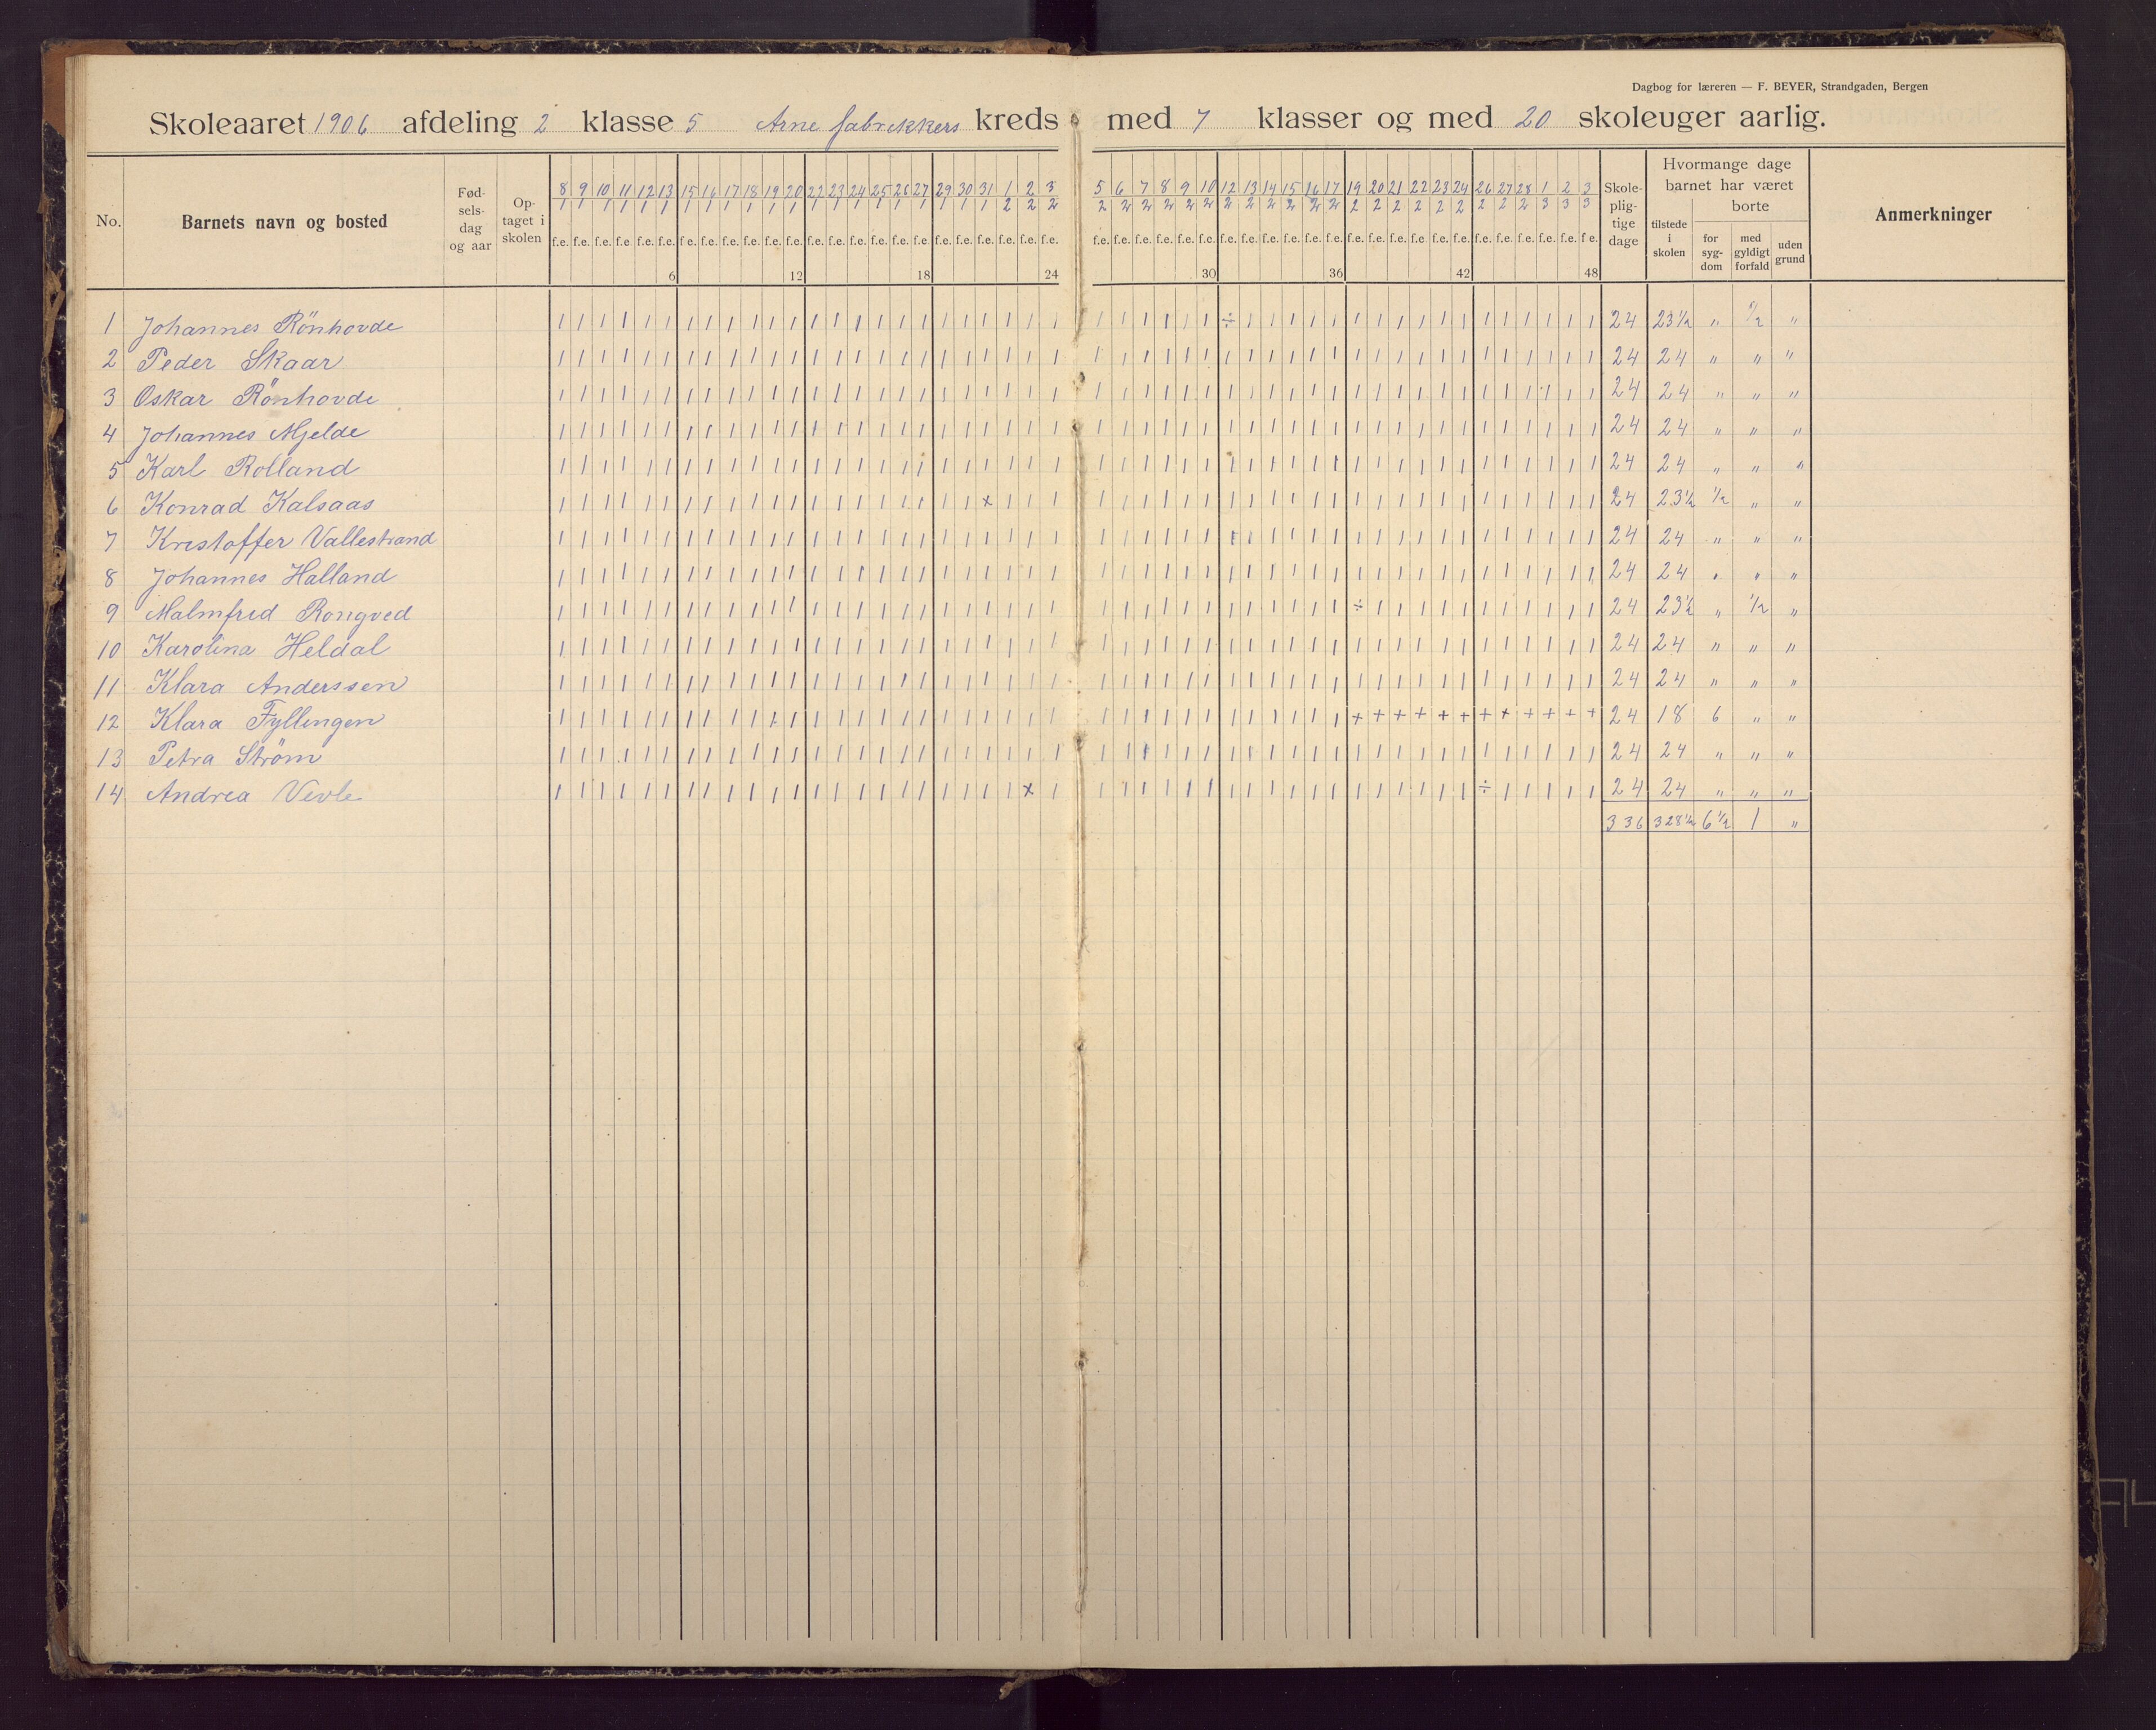 Dagbog for læreren — F. BEYER, Strandgaden, Bergen
Skoleaaret 1906 afdeling 2 klasse 5 Arne fabrikkers kreds med 7 klasser og med 20 skoleuger aarlig.
No. Barnets navn og bosted Fød-sels-dag og aar Op-taget i skolen Skole-plig-tige dage Hvormange dage barnet har været tilstede i skolen borte for syg-dom med gyldigt forfald uden grund Anmerkninger
8/1 9/1 10/1 11/1 12/1 13/1 15/1 16/1 17/1 18/1 19/1 20/1 22/1 23/1 24/1 25/1 26/1 27/1 29/1 30/1 31/1 1/2 2/2 3/2 5/2 6/2 7/2 8/2 9/2 10/2 12/2 13/2 14/2 15/2 16/2 17/2 19/2 20/2 21/2 22/2 23/2 24/2 26/2 27/2 28/2 1/3 2/3 3/3
f.e. f.e. f.e. f.e. f.e. f.e. f.e. f.e. f.e. f.e. f.e. f.e. f.e. f.e. f.e. f.e. f.e. f.e. f.e. f.e. f.e. f.e. f.e. f.e. f.e. f.e. f.e. f.e. f.e. f.e. f.e. f.e. f.e. f.e. f.e. f.e. f.e. f.e. f.e. f.e. f.e. f.e. f.e. f.e. f.e. f.e. f.e. f.e.
6 12 18 24 30 36 42 48
1 Johannes Rönhovde 24 23½ " ½ "
2 Peder Skaar 24 24 " " "
3 Oskar Rönhovde 24 24 " " "
4 Johannes Mjelde 24 24 " " "
5 Karl Rolland 24 24 " " "
6 Konrad Kalsaas 24 23½ ½ " "
7 Kristoffer Vallestrand 24 24 " " "
8 Johannes Halland 24 24 " " "
9 Malmfred Rongved 24 23½ " ½ "
10 Karolina Heldal 24 24 " " "
11 Klara Anderssen 24 24 " " "
12 Klara Fyllingen 24 18 6 " "
13 Petra Ström 24 24 " " "
14 Andrea Vevle 24 24 " " "
336 328½ 6½ 1 "